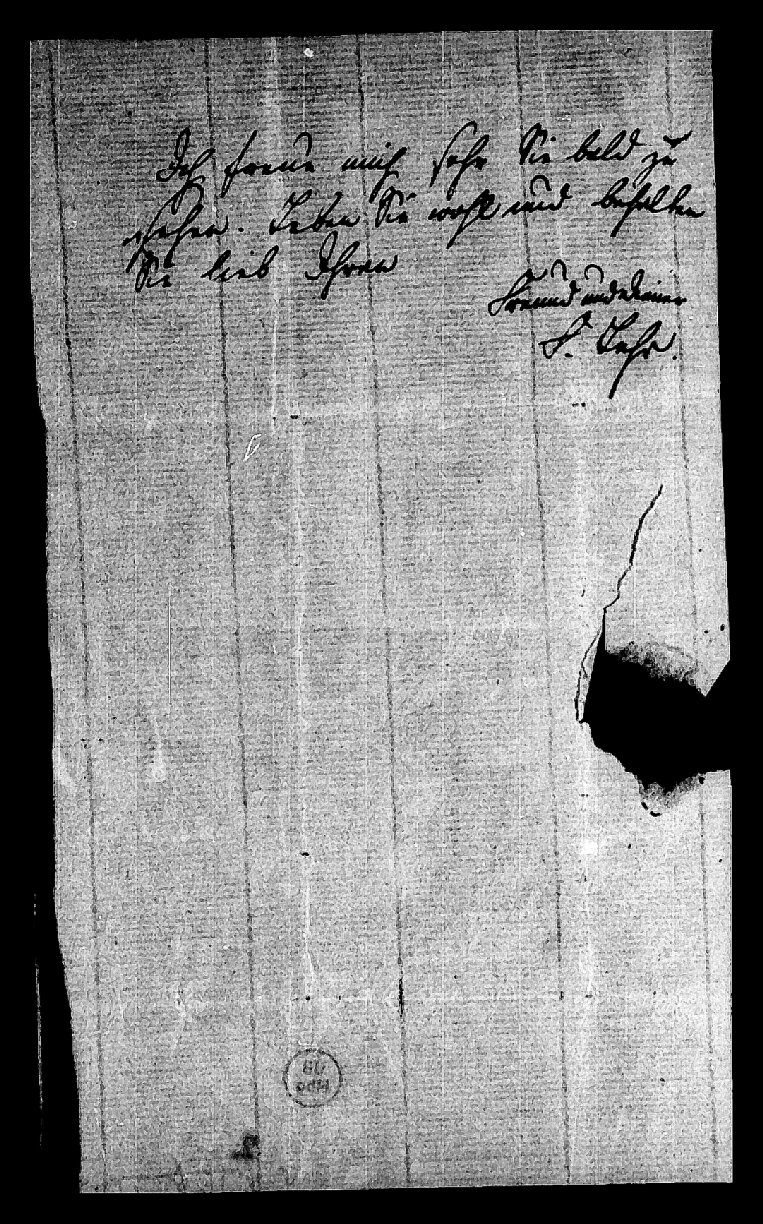 Ich freue mich sehr Sie bald zu
sehen. Leben Sie wohl und behalten
Sie lieb Ihren
Freund und Diener
F. Lehr.
UB